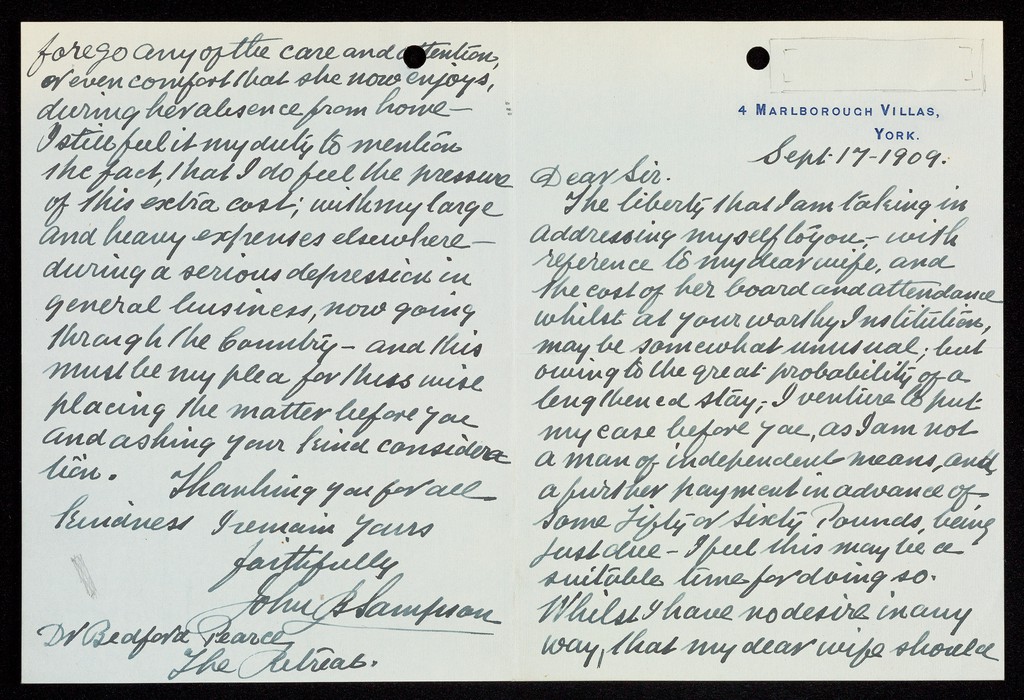 4 MARLBOROUGH VILLAS,
YORK.
Sept. 17-1909.
Dear Sir.
The liberty that I am taking in
addressing myself to you,- with
reference to my dear wife, and
the cost of her board and attendance
whilst at your worthy Institution,
may be somewhat unusual; but
owing to the great probability of a
lengthened stay,- I venture to put
my case before you, as I am not
a man of independent means, and
a further payment in advance of
some Fifty or Sixty Pounds, being
just due - I feel this may be a
suitable time for doing so.
Whilst I have no desire in any
way, that my dear wife should
forego any of the care and attention,
or even comfort that she now enjoys,
during her absence from home-
I still feel it my duty to mention
the fact, that I do feel the pressure
of this extra cost; with my large
and heavy expenses elsewhere-
during a serious depression in
general business, now going
through the Country- and this
must be my plea for thus wise
placing the matter before you
and asking your kind considera
tion. Thanking you for all
kindness I remain yours
faithfully
John B Sampson
Dr Bedford Pearce
The Retreat.